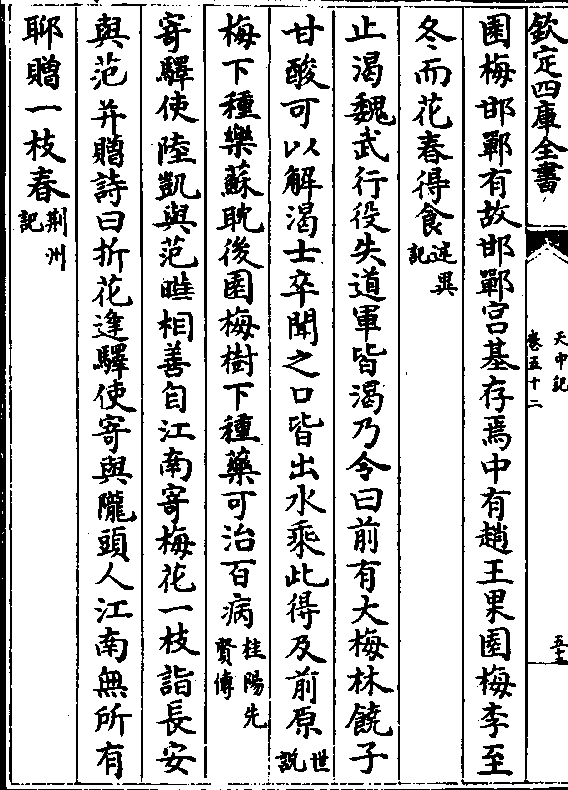 欽定四庫全書
天中記
卷五十二
五十三
園梅邯鄲有故邯鄲宫基存焉中有趙王果園梅李至
冬而花春得食述異記
止渴魏武行役失道軍皆渴乃令曰前有大梅林饒子
甘酸可以解渴士卒聞之口皆出水乘此得及前原世説
梅下種藥蘇耽後園梅樹下種藥可治百病桂陽先賢傳
寄驛使陸凱與范曄相善自江南寄梅花一枝詣長安
與范并贈詩曰折花逢驛使寄與隴頭人江南無所有
聊贈一枝春荆州記